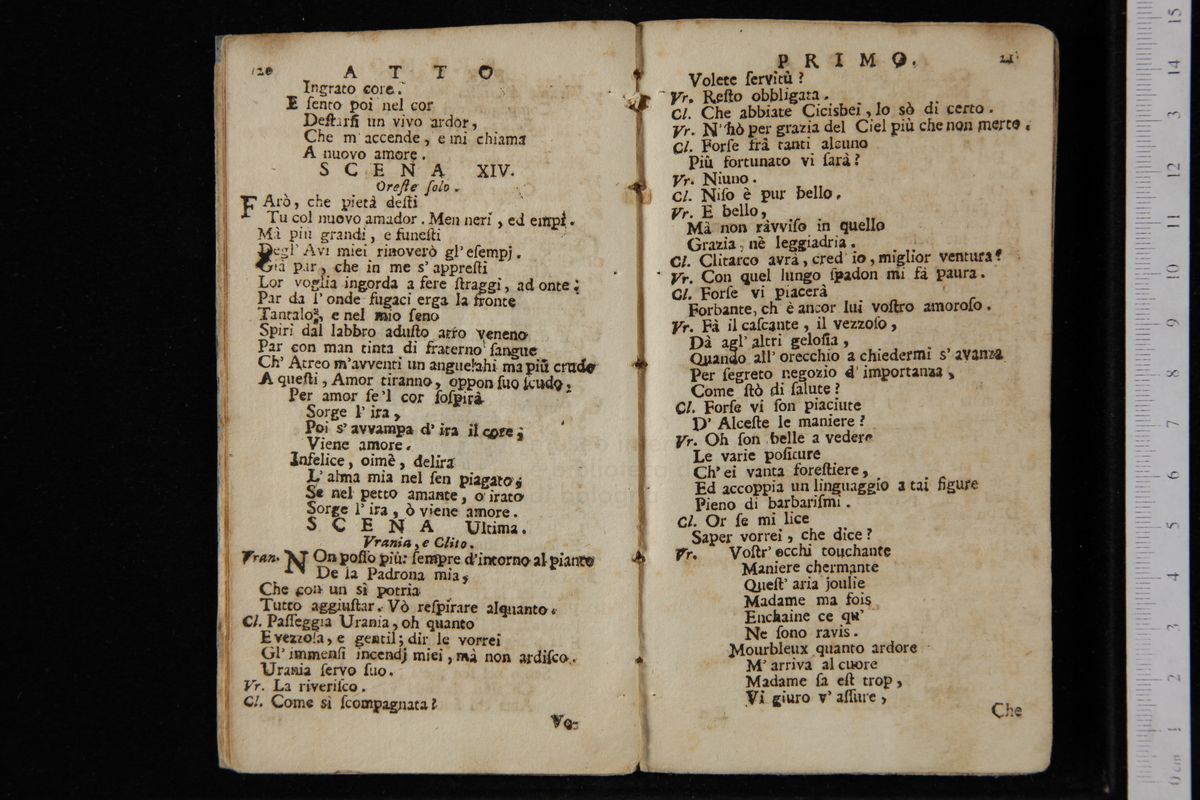 20 ATTO
Ingrato core.
E sento poi nel cor
Destarsi un vivo ardor,
Che m'accende, e mi chiama
A nuovo amore.
SCENA XIV.
Oreste solo.
FArò, che pietà desti
Tu col nuovo amador. Men neri, ed empj.
Mà più grandi, e funesti
Degl' Avi miei rinoverò gl' esempj.
Già par, che in me s' appresti
Lor voglia ingorda a fere straggi, ad onte;
Par da l' onde fugaci erga la fronte
Tantalo, e nel mio seno
Spiri dal labbro adusto atro veneno
Par con man tinta di fraterno sangue
Ch' Atreo m'avventi un angue! ahi ma più crudo
A questi, Amor tiranno, oppon suo scudo.
Per amor se'l cor sospira
Sorge l' ira,
Poi s' avvampa d' ira il core;
Viene amore.
Infelice, oimè, delira
L' alma mia nel sen piagato;
Se nel petto amante, o irato
Sorge l' ira, ò viene amore.
SCENA Ultima.
Urania, e Clito.
Vran. NOn posso più: sempre d'intorno al pianto
De la Padrona mia,
Che con un sì potria
Tutto aggiustar. Vò respirare alquanto.
Cl. Passeggia Urania, oh quanto
E vezzosa, e gentil; dir le vorrei
Gl' immensi incendj miei, mà non ardisco.
Urania servo suo.
Vr. La riverisco.
Cl. Come sì scompagnata?
Vo-
PRIMO. 21
Volete servitù?
Vr. Resto obbligata.
Cl. Che abbiate Cicisbei, lo sò di certo.
Vr. N'hò per grazia del Ciel più che non merto.
Cl. Forse frà tanti alcuno
Più fortunato vi sarà?
Vr. Niuno.
Cl. Niso è pur bello.
Vr. E bello,
Mà non ràvviso in quello
Grazia, nè leggiadria.
Cl. Clitarco avrà, cred' io, miglior ventura?
Vr. Con quel lungo spadon mi fà paura.
Cl. Forse vi piacerà
Forbante, ch' è ancor lui vostro amoroso.
Vr. Fà il cascante, il vezzoso,
Dà agl' altri gelosia,
Quando all' orecchio a chiedermi s' avanza
Per segreto negozio d' importanza,
Come stò di salute?
Cl. Forse vi son piaciute
D' Alceste le maniere?
Vr. Oh son belle a vedere
Le varie positure
Ch' ei vanta forestiere,
Ed accoppia un linguaggio a tai figure
Pieno di barbarismi.
Cl. Or se mi lice
Saper vorrei, che dice?
Vr. Vostr' occhi touchante
Maniere chermante
Quest' aria joulie
Madame ma fois
Enchaine ce qu'
Ne sono ravis.
Mourbleux quanto ardore
M' arriva al cuore
Madame sa est trop,
Vi giuro v' assure,
Che